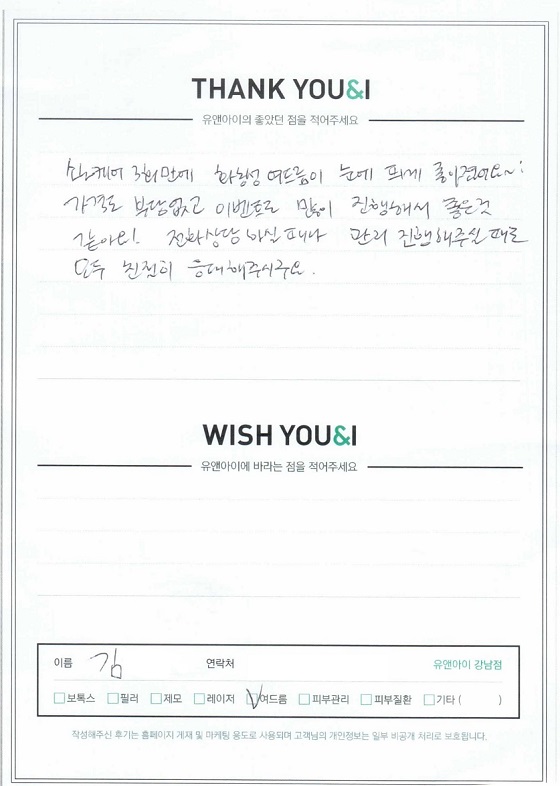 THANK YOU&I
유앤아이의 좋았던 점을 적어주세요
케어 3회만에 화농성 여드름이 눈에 띄게 좋아졌어요~!
가격도 부담없고 이벤트로 많이 진행해서 좋은것
같아요! 전화상담 하실때나 관리 진행해주실때도
모두 친절히 응대해주시구요.
WISH YOU&I
유앤아이에 바라는 점을 적어주세요
이름 김 연락처 유앤아이 강남점
보톡스 필러 제모 레이저 V 여드름 피부관리 피부질환 기타 ( )
작성해주신 후기는 홈페이지 게재 및 마케팅 용도로 사용되며 고객님의 개인정보는 일부 비공개 처리로 보호됩니다.